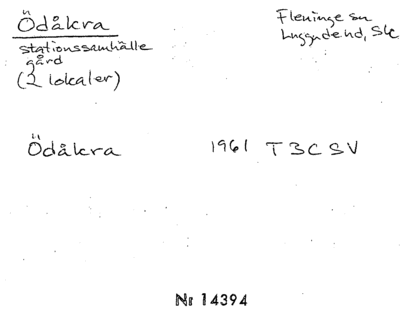 Ödåkra
stationssamhälle
gård
(2 lokaler)
Fleninge sn
Luggude hd, Sk
Ödåkra 1961 T 3 C S V
Nr 14394